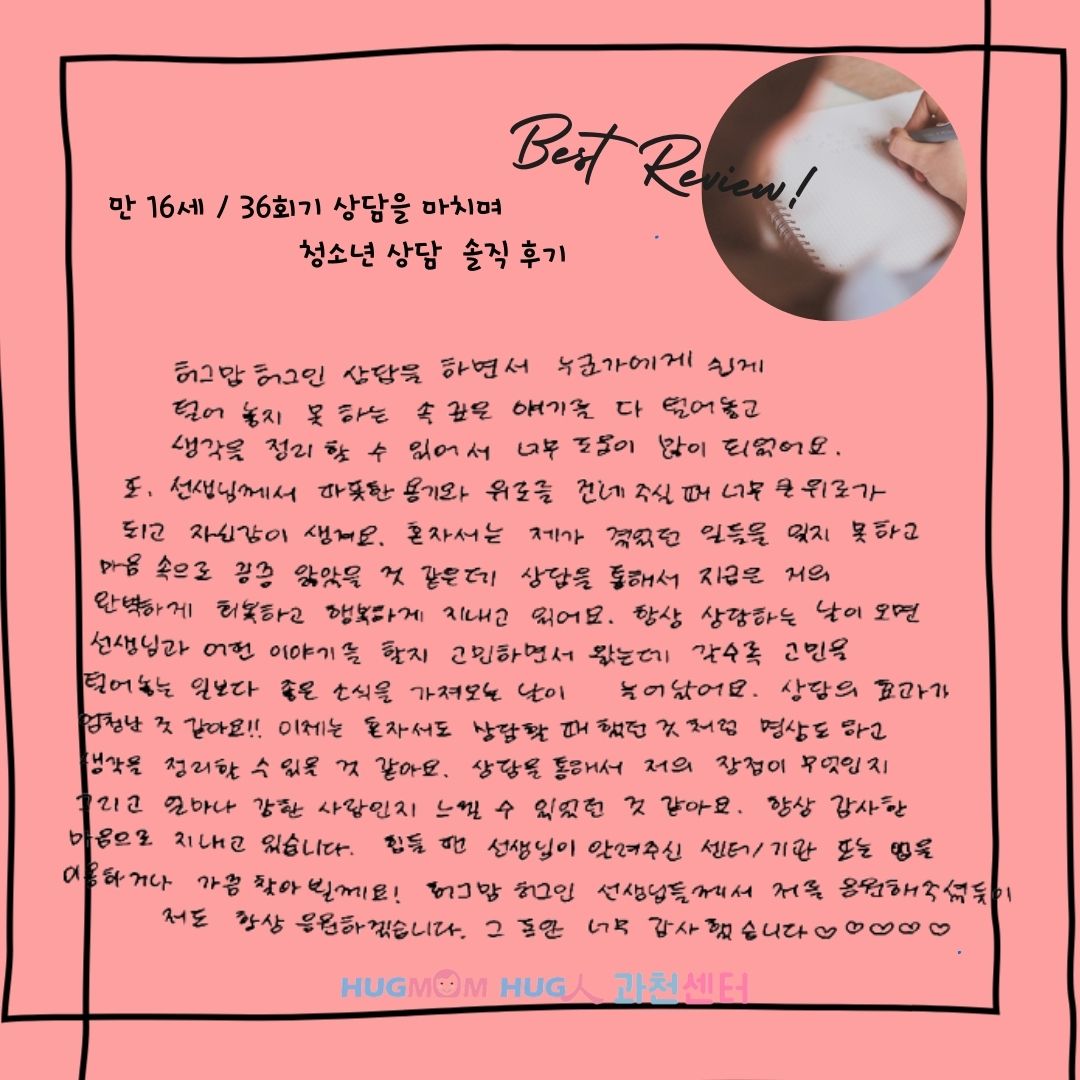 Best Review!
만 16세 / 36회기 상담을 마치며
청소년 상담 솔직 후기
허그맘 허그인 상담을 하면서 누군가에게 쉽게
털어 놓지 못 하는 속 깊은 얘기를 다 털어놓고
생각을 정리 할 수 있어서 너무 도움이 많이 되었어요.
또, 선생님께서 따뜻한 용기와 위로를 건네 주실 때 너무 큰 위로가
되고 자신감이 생겨요. 혼자서는 제가 겪었던 일들을 잊지 못하고
마음 속으로 끙끙 앓았을 것 같은데 상담을 통해서 지금은 저의
완벽하게 회복하고 행복하게 지내고 있어요. 항상 상담하는 날이 오면
선생님과 어떤 이야기를 할지 고민하면서 왔는데 갈수록 고민을
털어놓는 일보다 좋은 소식을 가져오는 날이 늘어났어요. 상담의 효과가
엄청난 것 같아요!! 이제는 혼자서도 상담할 때 했던 것 처럼 명상도 하고
생각을 정리할 수 있을 것 같아요. 상담을 통해서 저의 장점이 무엇인지
그리고 얼마나 강한 사람인지 느낄 수 있었던 것 같아요. 항상 감사한
마음으로 지내고 있습니다. 힘들 땐 선생님이 알려주신 센터/기관 또는 앱을
이용하거나 가끔 찾아 뵐께요! 허그맘 허그인 선생님들께서 저를 응원해주셨듯이
저도 항상 응원하겠습니다. 그 동안 너무 감사했습니다♡♡♡♡♡
HUGMOM HUG人 과천센터